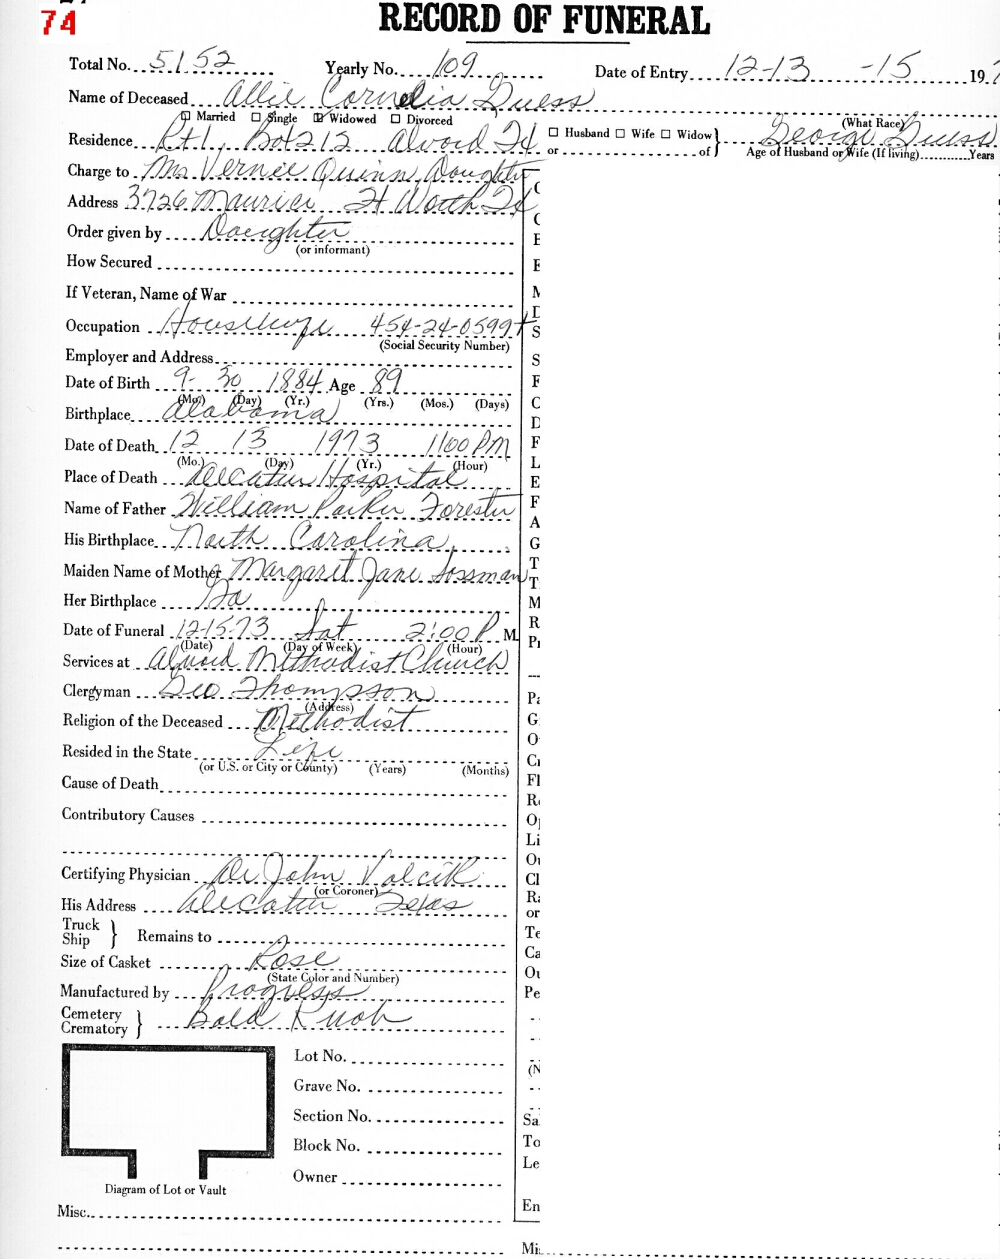 74
RECORD OF FUNERAL
Total No. 5152 Yearly No. 109 Date of Entry 12-13 -15 19
Name of Deceased Allie Cornelia Guess
☐ Married ☐ Single ☒ Widowed ☐ Divorced (What Race)
Residence Rt 1, Box 212 Alvord Tx ☐ Husband ☐ Wife ☐ Widow } George Guess
or of } Age of Husband or Wife (If living) Years
Charge to Mrs. Vernie Quinn, Daughter
Address 3726 Maurice Ft Worth Tx
Order given by Daughter
(or informant)
How Secured
If Veteran, Name of War
Occupation Housewife 454-24-0599
(Social Security Number)
Employer and Address
Date of Birth 9- 30 1884 Age 89
(Mo.) (Day) (Yr.) (Yrs.) (Mos.) (Days)
Birthplace Alabama
Date of Death 12 13 1973 1100 PM
(Mo.) (Day) (Yr.) (Hour)
Place of Death Decatur Hospital
Name of Father William Parker Forester
His Birthplace North Carolina
Maiden Name of Mother Margaret Jane Sossman
Her Birthplace Ga
Date of Funeral 12-15-73 Sat 2:00 P M.
(Date) (Day of Week) (Hour)
Services at Alvord Methodist Church
Clergyman Geo Thompson
(Address)
Religion of the Deceased Methodist
Resided in the State Life
(or U.S. or City or County) (Years) (Months)
Cause of Death
Contributory Causes
Certifying Physician Dr John Valcik
(or Coroner)
His Address Decatur Texas
Truck
Ship } Remains to
Size of Casket Rose
(State Color and Number)
Manufactured by Progress
Cemetery
Crematory } Bald Knob
Lot No.
Grave No.
Section No.
Block No.
Owner
Diagram of Lot or Vault
Misc.